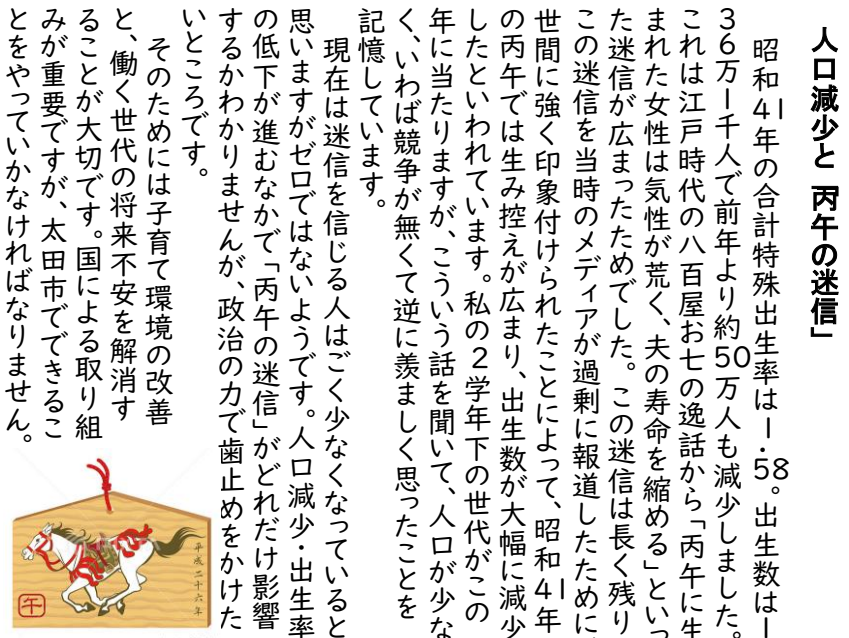 人口減少と「丙午の迷信」
昭和41年の合計特殊出生率は1.58。出生数は1
36万1千人で前年より約50万人も減少しました。
これは江戸時代の八百屋お七の逸話から「丙午に生
まれた女性は気性が荒く、夫の寿命を縮める」といっ
た迷信が広まったためでした。この迷信は長く残り
この迷信を当時のメディアが過剰に報道したために、
世間に強く印象付けられたことによって、昭和41年
の丙午では生み控えが広まり、出生数が大幅に減少
したといわれています。私の2学年下の世代がこの
年に当たりますが、こういう話を聞いて、人口が少な
く、いわば競争が無くて逆に羨ましく思ったことを
記憶しています。
現在は迷信を信じる人はごく少なくなっていると
思いますがゼロではないようです。人口減少・出生率
の低下が進むなかで「丙午の迷信」がどれだけ影響
するかわかりませんが、政治の力で歯止めをかけた
いところです。
そのためには子育て環境の改善
と、働く世代の将来不安を解消す
ることが大切です。国による取り組
みが重要ですが、太田市でできるこ
とをやっていかなければなりません。
平成二十六年
午